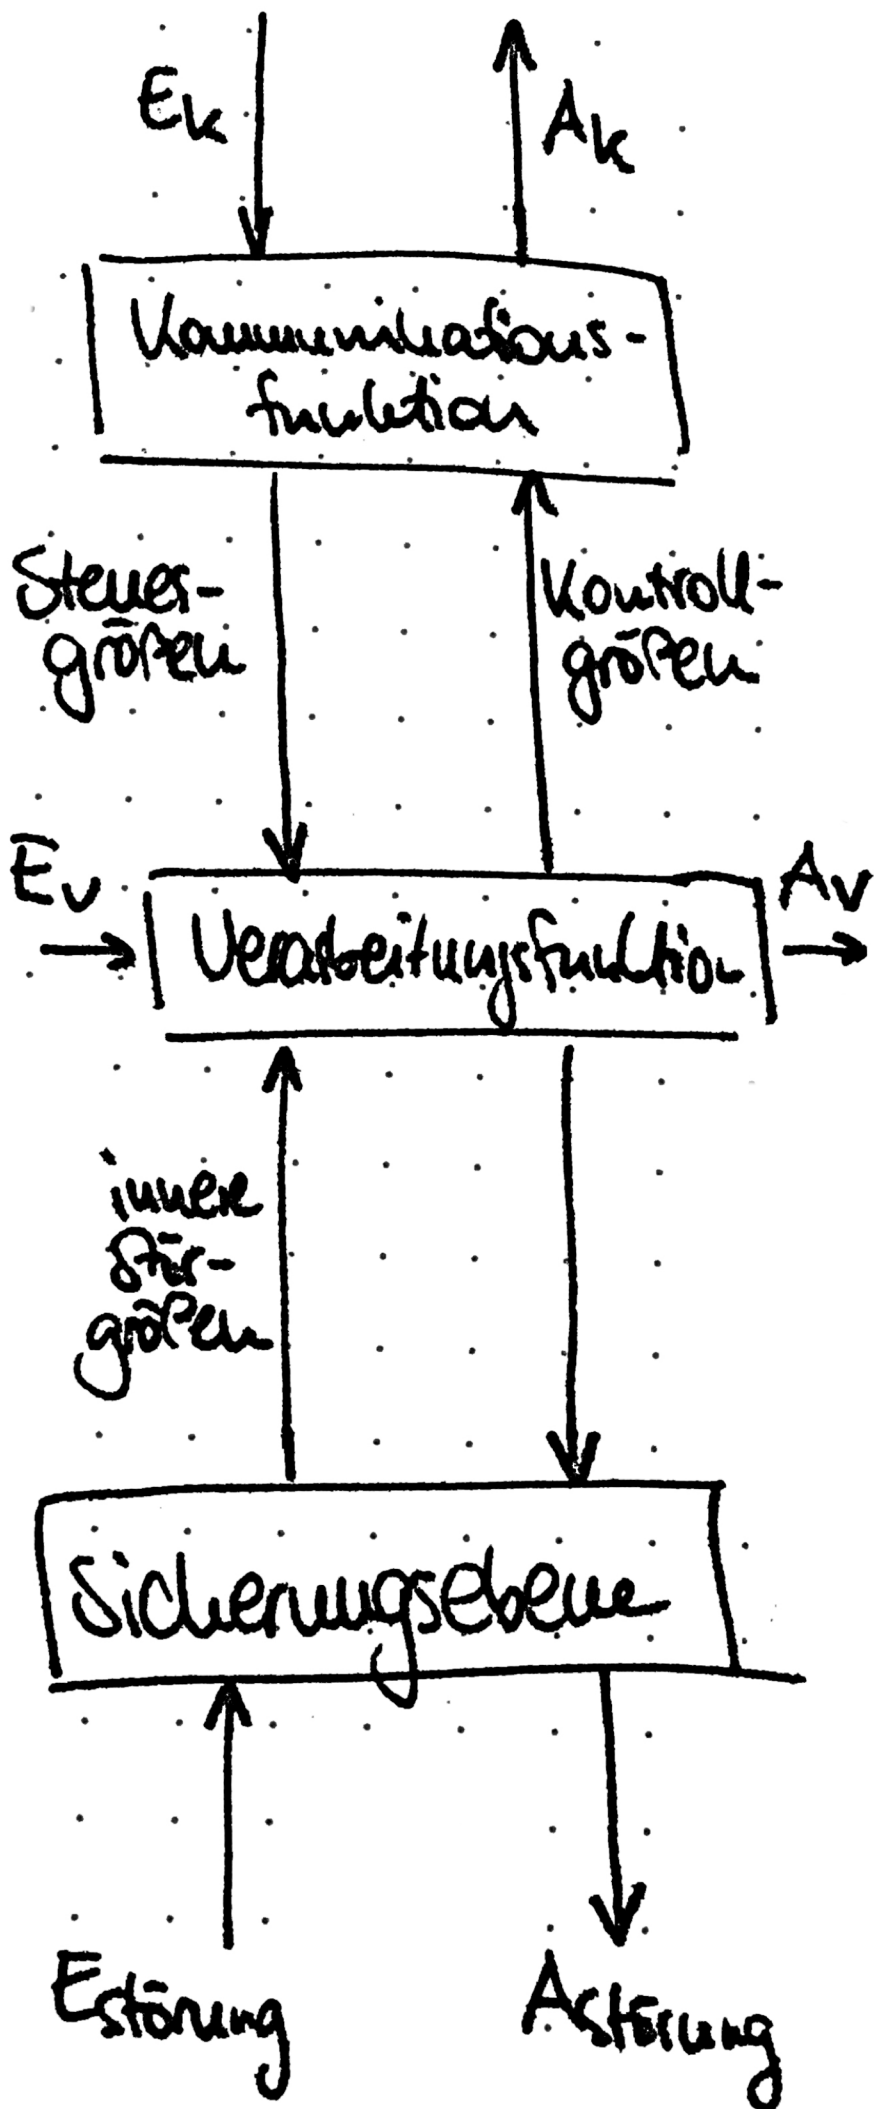 Ek
Ak
Kommunikations-
funktion
Steuer-
größen
Kontroll-
größen
Ev
Verarbeitungsfunktion
Av
innere
Stör-
größen
Sicherungsebene
Estörung
Astörung